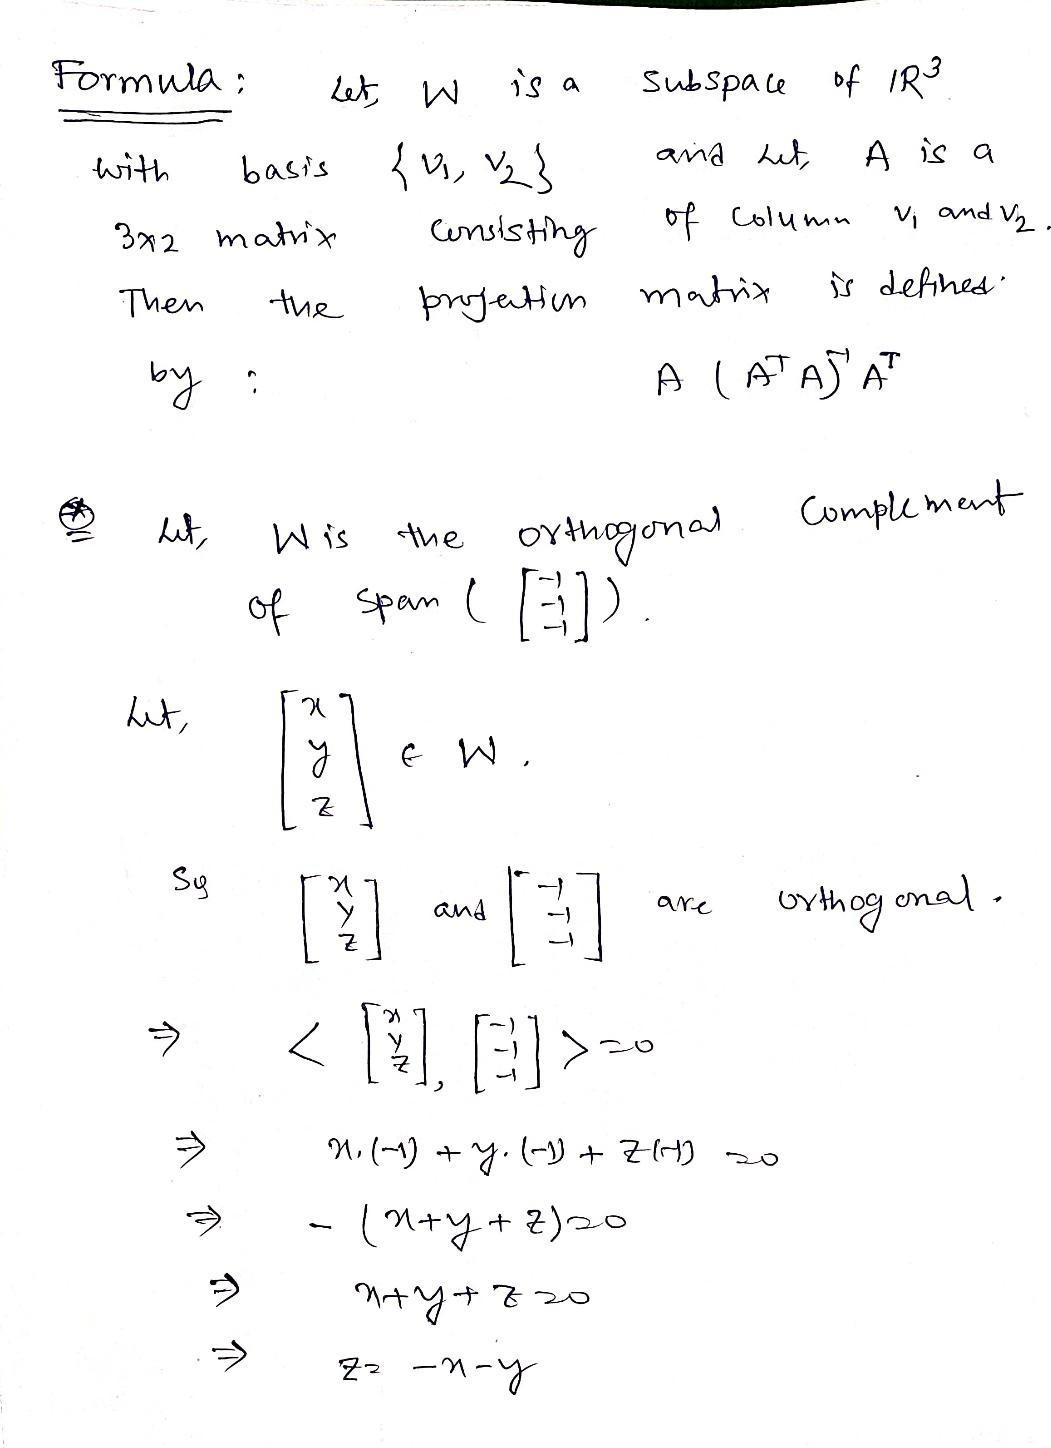 Formula : Let, W is a subspace of IR³
with basis { v₁, v₂ } and Let, A is a
3x2 matrix consisting of column v₁ and v₂.
Then the projection matrix is defined
by : A (AᵀA)⁻¹ Aᵀ
⊛ Let, W is the orthogonal complement
of span ( [-1 -1 -1] ) .
Let, [x y z] ∈ W .
So, [x y z] and [-1 -1 -1] are orthogonal .
⇒ < [x y z], [-1 -1 -1] > = 0
⇒ x.(-1) + y.(-1) + z(-1) = 0
⇒ - (x+y+z) = 0
⇒ x+y+z = 0
⇒ z = -x-y